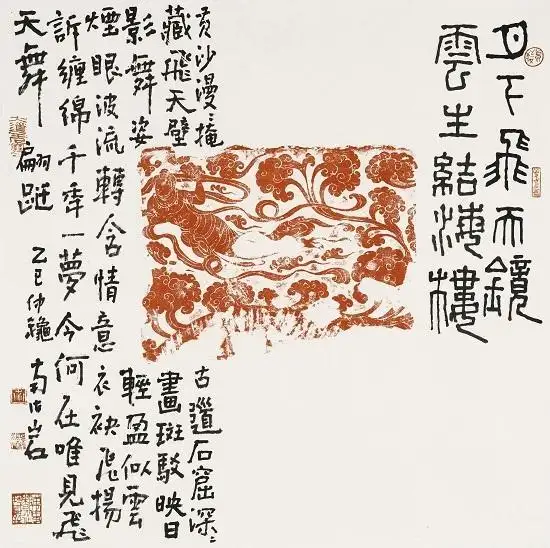 月下飛天鏡
雲生結海樓
黄沙漫掩古道石窟深〻
藏飛天壁畫斑駁映日
影舞姿輕盈似雲
煙眼波流轉含情意衣袂飛揚
訴纏綿千年一夢今何在唯見飛
天舞翩跹
乙巳仲龝